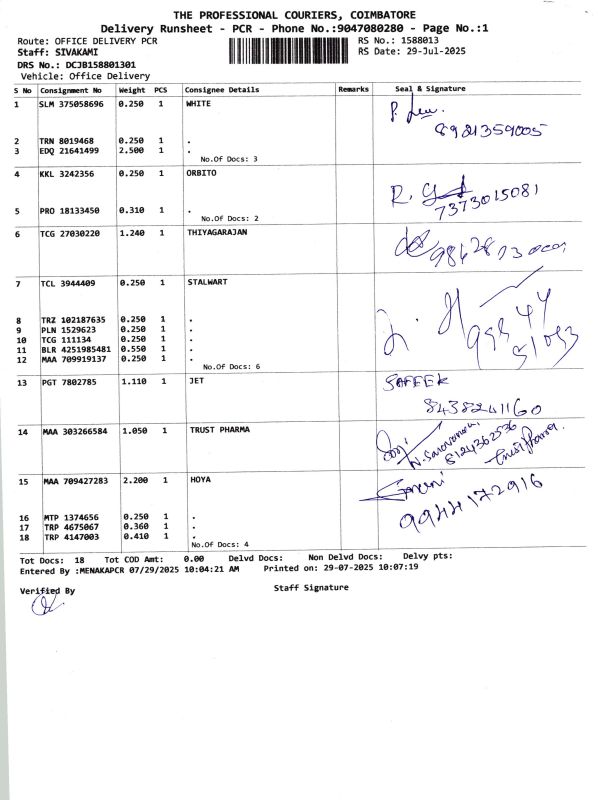 THE PROFESSIONAL COURIERS, COIMBATORE
Delivery Runsheet - PCR - Phone No.:9047080280 - Page No.:1
Route: OFFICE DELIVERY PCR RS No.: 1588013
Staff: SIVAKAMI RS Date: 29-Jul-2025
DRS No.: DCJB158801301
Vehicle: Office Delivery
S No Consignment No Weight PCS Consignee Details Remarks Seal & Signature
1 SLM 375058696 0.250 1 WHITE
8921359005
2 TRN 8019468 0.250 1 .
3 EDQ 21641499 2.500 1 .
No.Of Docs: 3
4 KKL 3242356 0.250 1 ORBITO
7373015081
5 PRO 18133450 0.310 1 .
No.Of Docs: 2
6 TCG 27030220 1.240 1 THIYAGARAJAN
7 TCL 3944409 0.250 1 STALWART
8 TRZ 102187635 0.250 1 .
9 PLN 1529623 0.250 1 .
10 TCG 111134 0.250 1 .
11 BLR 4251985481 0.550 1 .
12 MAA 709919137 0.250 1 .
No.Of Docs: 6
13 PGT 7802785 1.110 1 JET SAFEEK
8438241160
14 MAA 303266584 1.050 1 TRUST PHARMA
8124362536
15 MAA 709427283 2.200 1 HOYA
9944172916
16 MTP 1374656 0.250 1 .
17 TRP 4675067 0.360 1 .
18 TRP 4147003 0.410 1 .
No.Of Docs: 4
Tot Docs: 18 Tot COD Amt: 0.00 Delvd Docs: Non Delvd Docs: Delvy pts:
Entered By :MENAKAPCR 07/29/2025 10:04:21 AM Printed on: 29-07-2025 10:07:19
Verified By Staff Signature